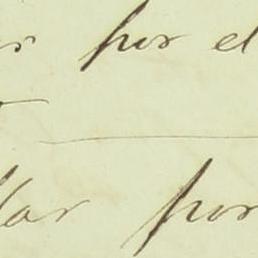 por el
lar por